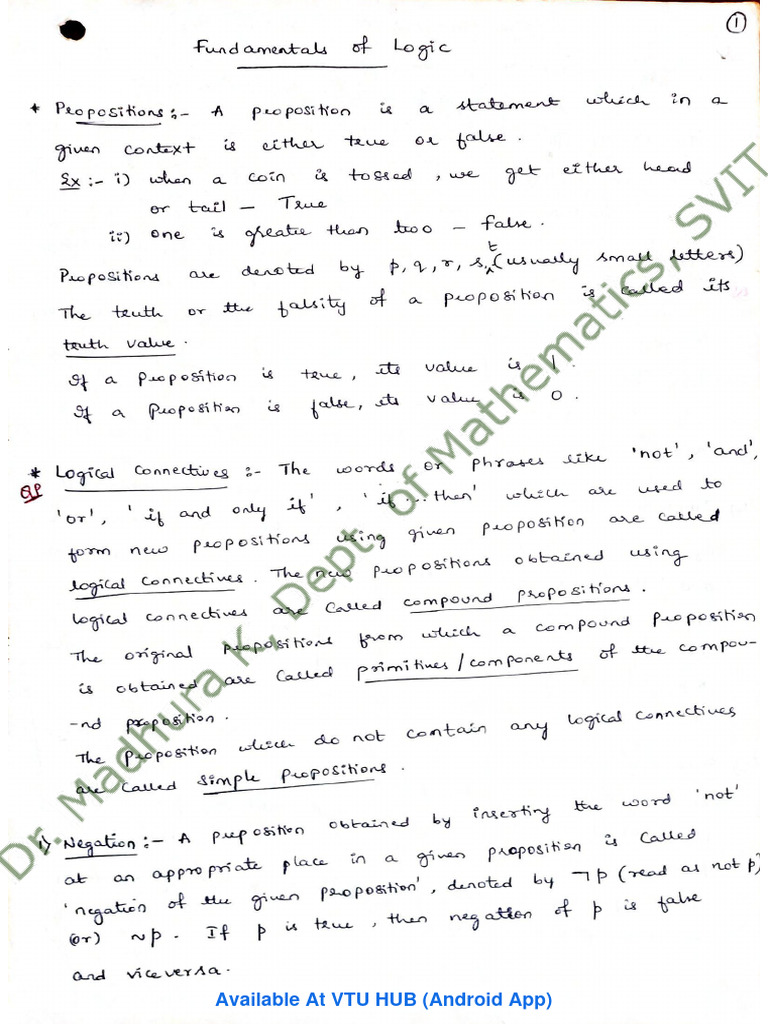 1
Fundamentals of Logic
* Propositions :- A proposition is a statement which in a
given context is either true or false.
Ex :- i) when a coin is tossed, we get either head
or tail - True
ii) One is greater than two - false.
Propositions are denoted by p, q, r, s, t (usually small letters)
The truth or the falsity of a proposition is called its
truth value.
If a proposition is true, its value is 1.
If a proposition is false, its value is 0.
* Logical Connectives :- The words or phrases like 'not', 'and',
QP
'or', 'if and only if', 'if...then' which are used to
form new propositions using given proposition are called
logical connectives. The new propositions obtained using
logical connectives are called compound propositions.
The original propositions from which a compound proposition
is obtained are called primitives/components of the compou-
-nd proposition.
The proposition which do not contain any logical connectives
are called simple propositions.
1) Negation :- A preposition obtained by inserting the word 'not'
at an appropriate place in a given proposition is called
'negation of the given proposition', denoted by ¬p (read as not p)
(or) ~p. If p is true, then negation of p is false
and viceversa.
Dr. Madhura K, Dept. of Mathematics, SVIT
Available At VTU HUB (Android App)